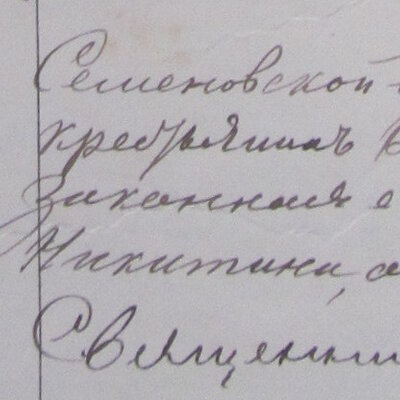 Семеновской
крестьянинъ
Законная
Никитина,
Священни